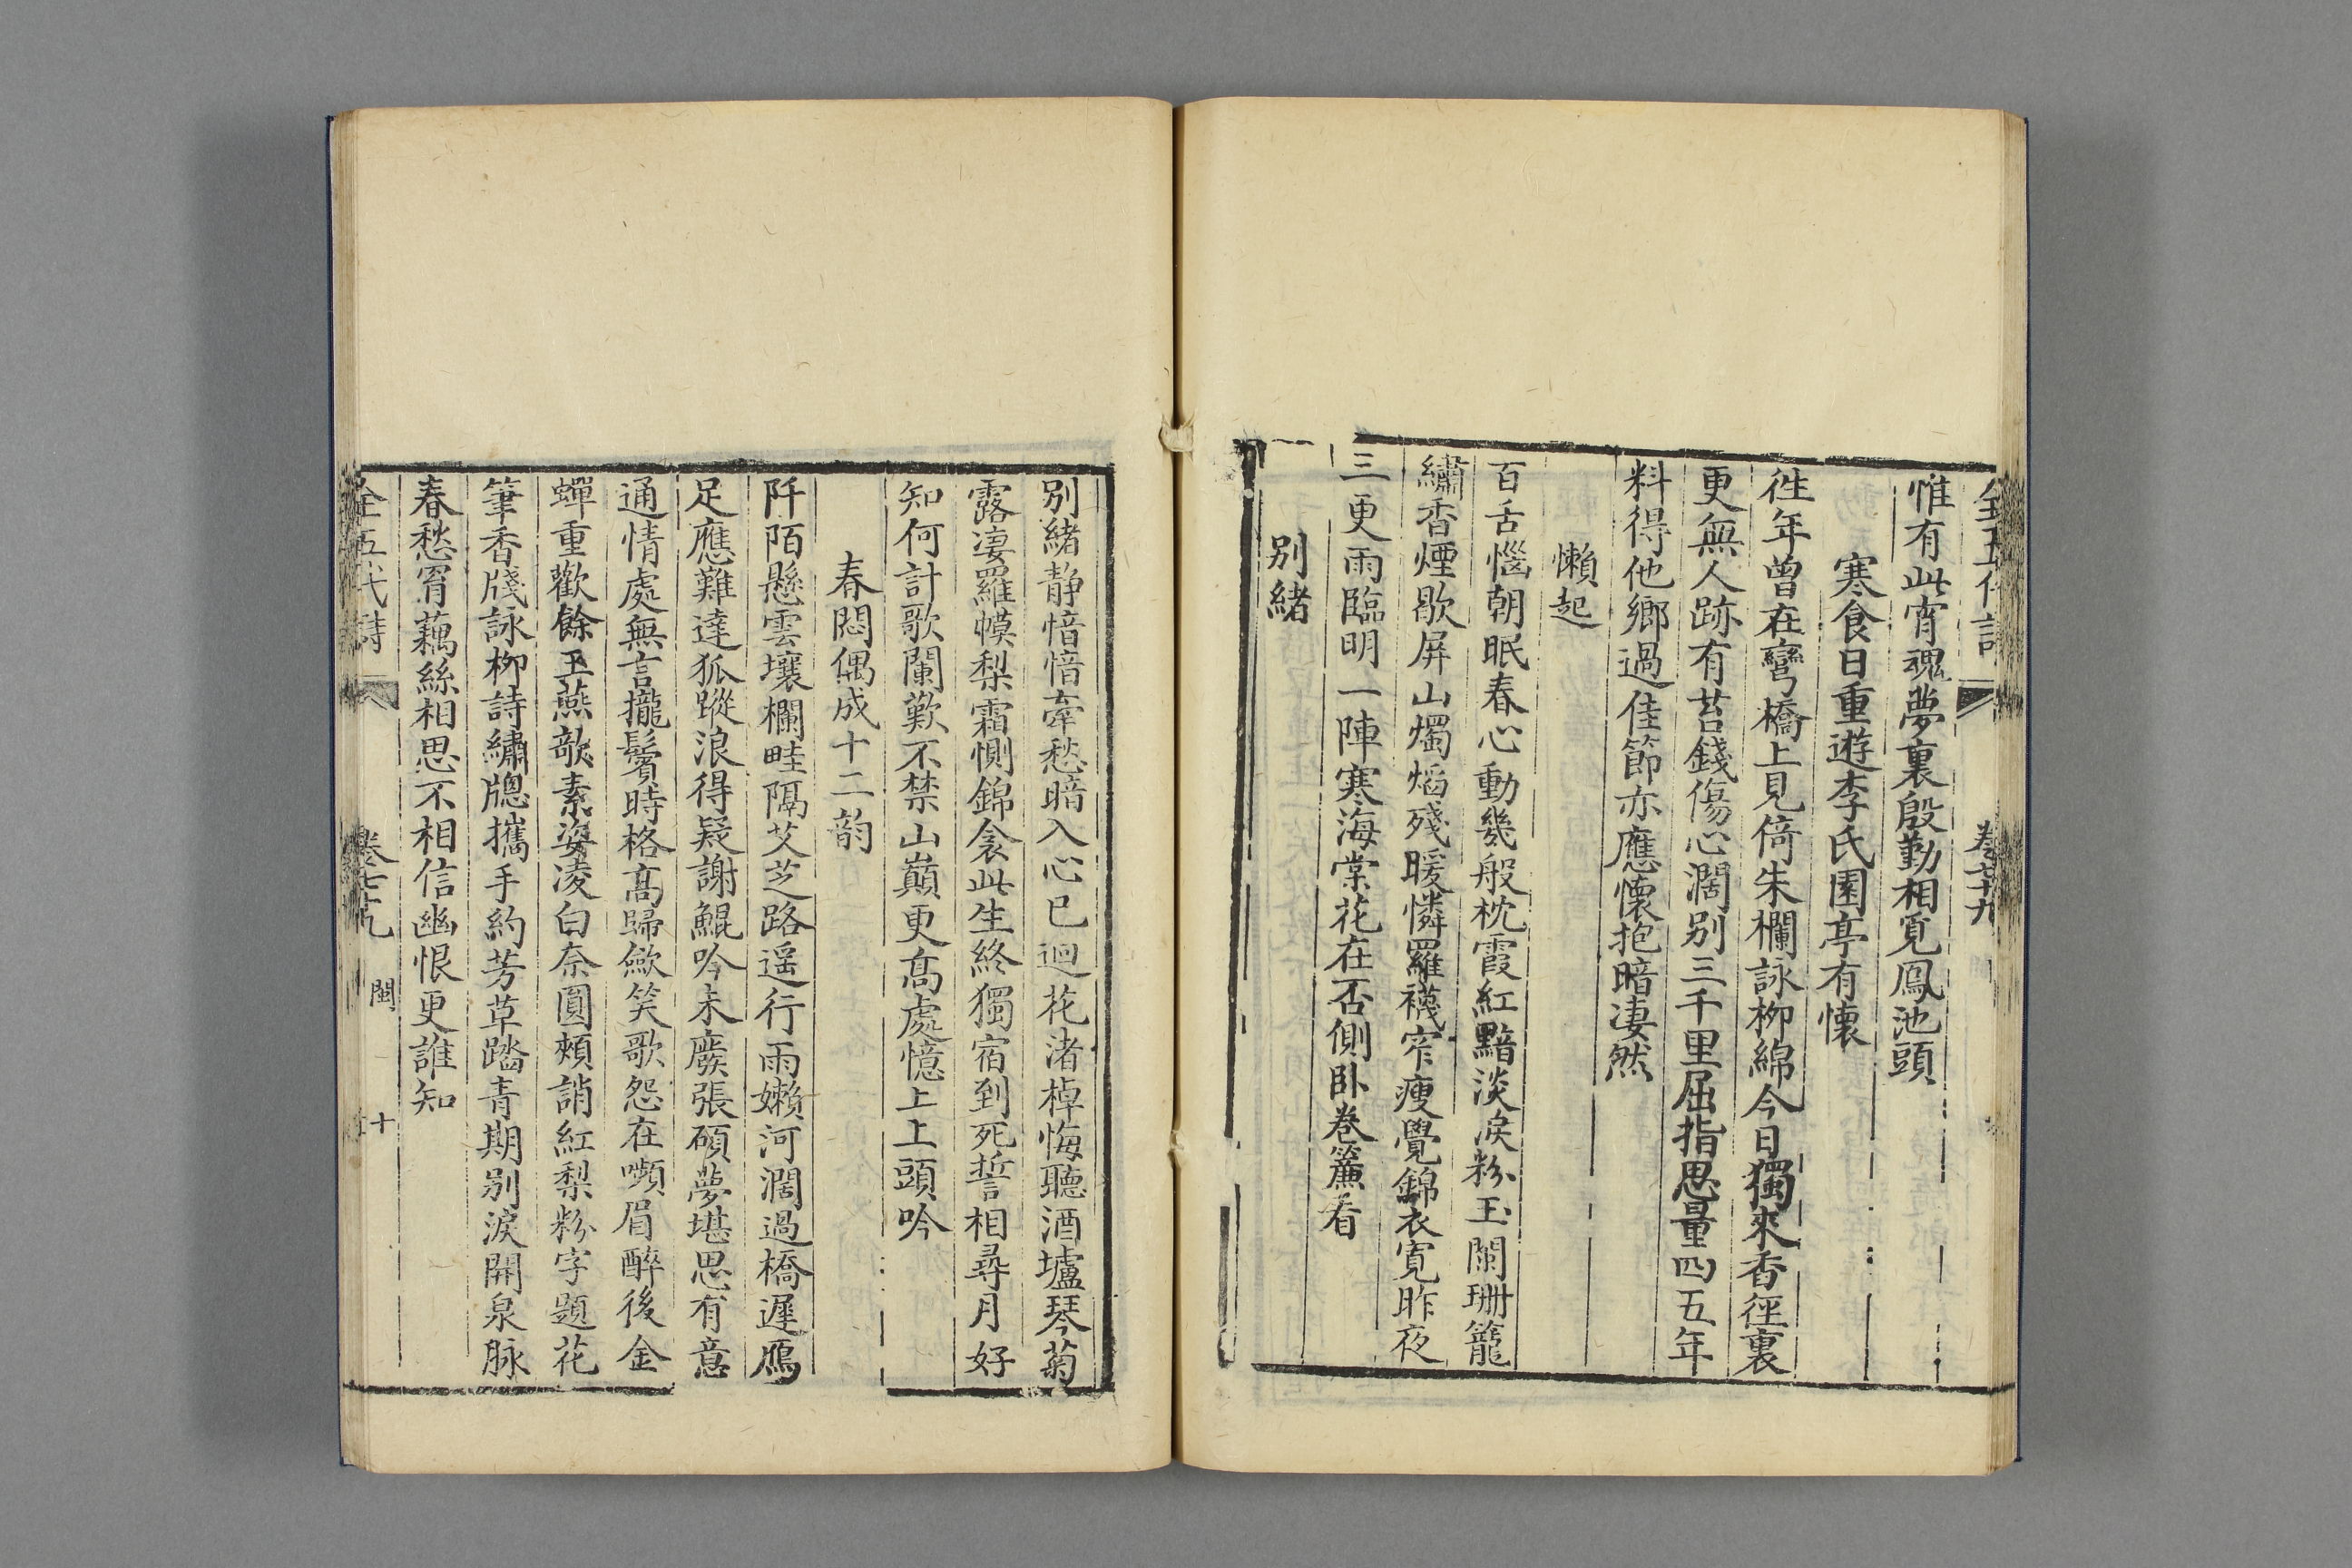 全五代詩 卷七十九
惟有此宵魂夢裏殷勤相覓鳳池頭
寒食日重遊李氏園亭有懷
徃年曾在彎橋上見倚朱欄詠柳綿今日獨來香徑裏
更無人跡有苔錢傷心濶别三千里屈指思量四五年
料得他鄉過佳節亦應懷抱暗凄然
懶起
百舌惱朝眠春心動幾般枕霞紅黯淡淚粉玉闌珊籠
繡香煙歇屏山燭熖殘暖憐羅襪窄瘦覺錦衣寛昨夜
三更雨臨明一陣寒海棠花在否側卧巻簾看
别緒
别緒静愔愔牽愁暗入心巳迴花渚棹悔聽酒壚琴菊
露凄羅幙梨霜惻錦衾此生終獨宿到死誓相尋月好
知何計歌闌歎不禁山巔更髙處憶上上頭吟
春悶偶成十二韵
阡陌懸雲壤欄畦隔艾芝路遥行雨嬾河濶過橋遲鴈
足應難達狐蹤浪得疑謝鯤吟未廢張碩夢堪思有意
通情處無言攏鬢時格髙歸歛笑歌怨在嚬眉醉後金
蟬重歡餘玉燕欹素姿凌白奈圓頰誚紅梨粉字題花
筆香牋詠柳詩繡牕攜手約芳草踏青期别淚開泉脉
春愁罥藕絲相思不相信幽恨更誰知
全五代詩 卷七十九 閩 十